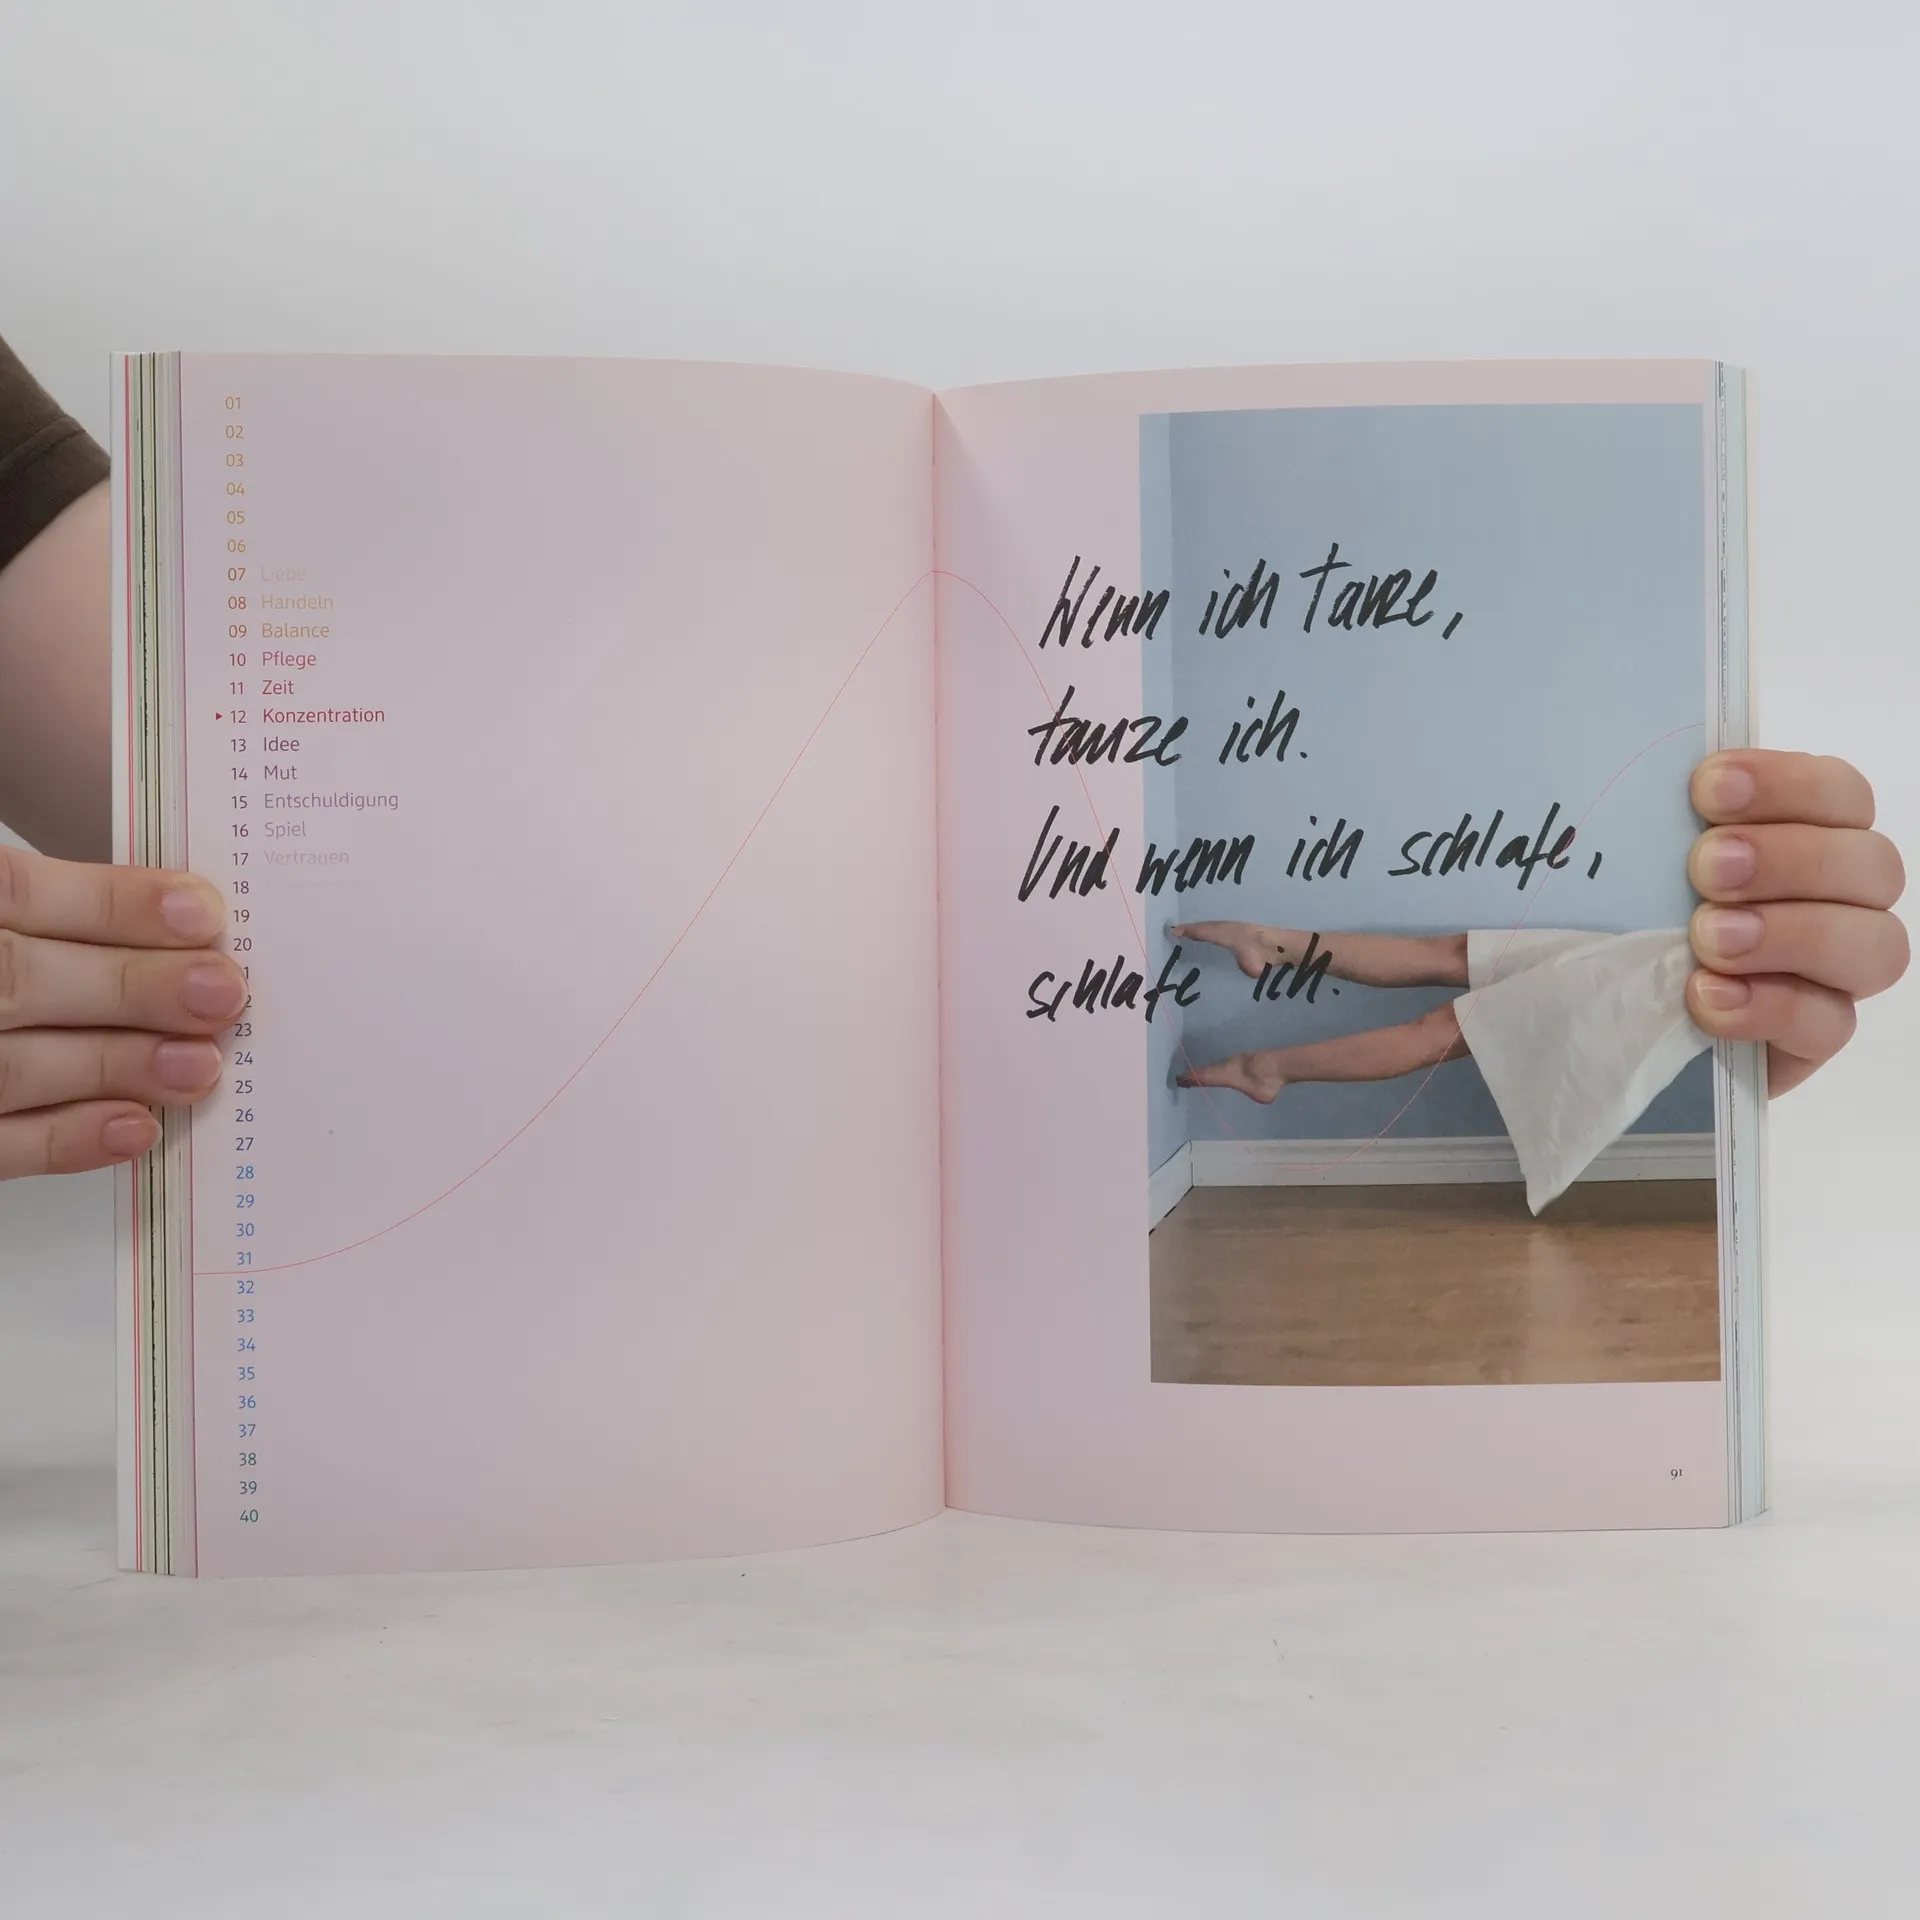 01
02
03
04
05
06
07 Liebe
08 Handeln
09 Balance
10 Pflege
11 Zeit
▸ 12 Konzentration
13 Idee
14 Mut
15 Entschuldigung
16 Spiel
17 Vertrauen
18
19
20
1
2
23
24
25
26
27
28
29
30
31
32
33
34
35
36
37
38
39
40
Wenn ich tanze,
tanze ich.
Und wenn ich schlafe,
schlafe ich.
91